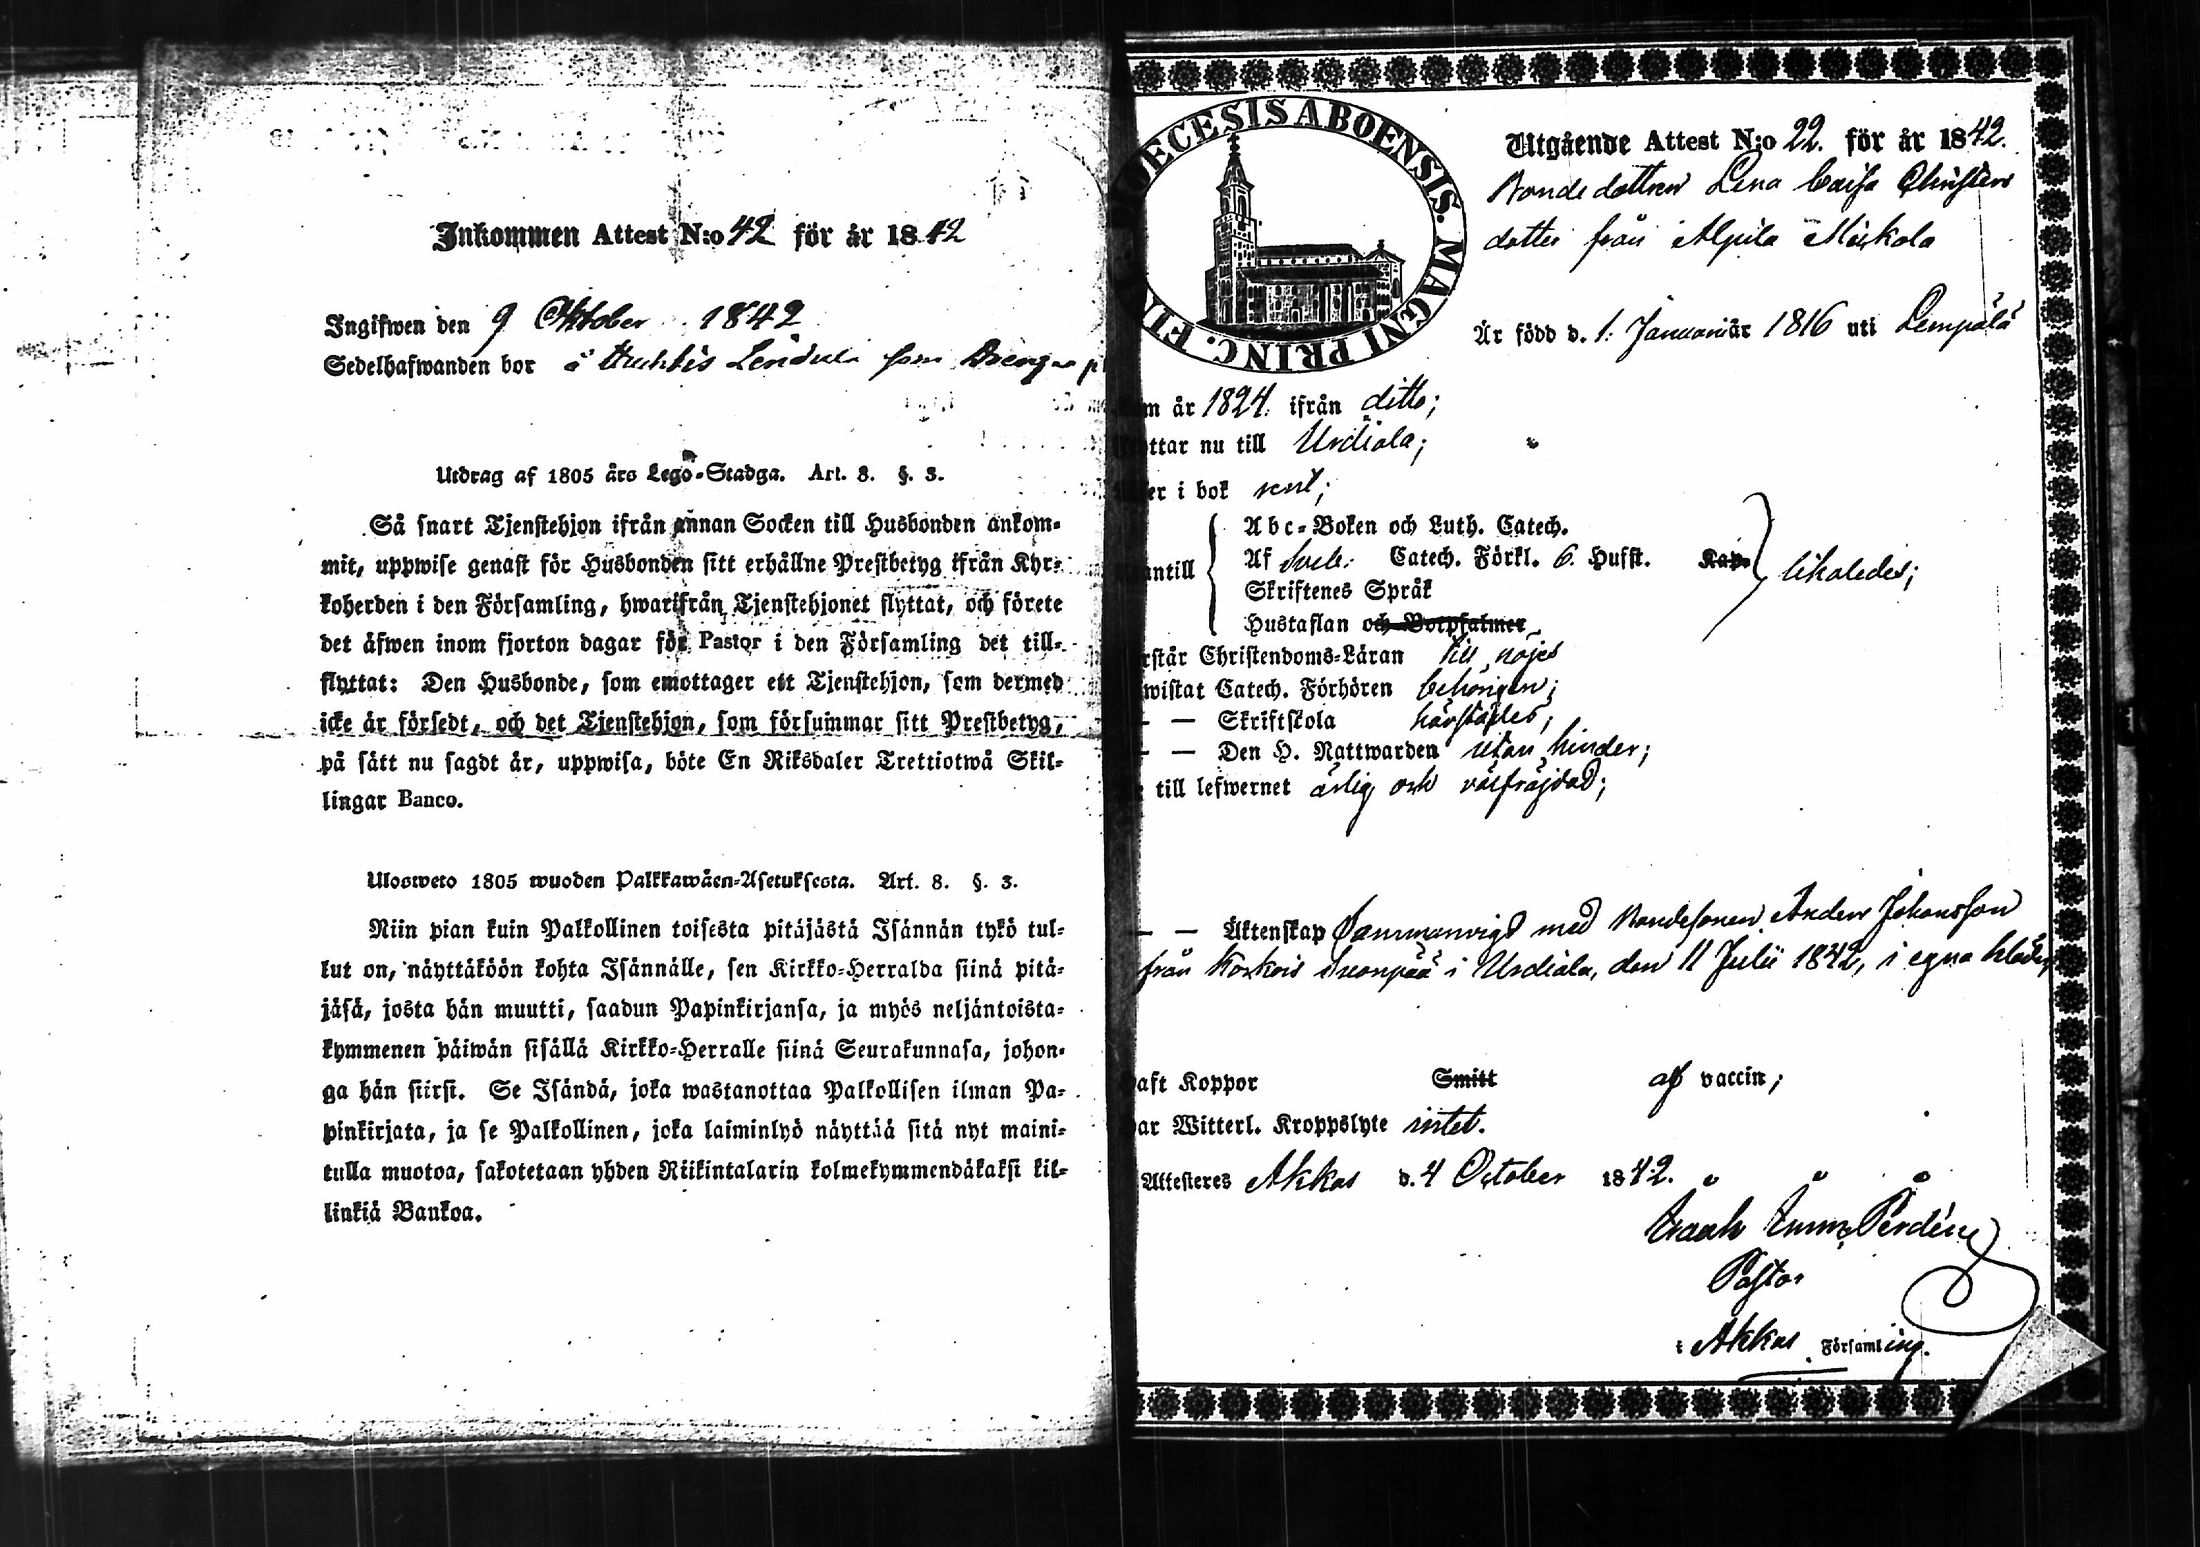 Inkommen Attest N:o 42 för år 1842
Ingifwen den 9 Oktober 1842
Sedelhafwanden bor å som
Utdrag af 1805 års Lego-Stadga. Art. 8. §. 3.
Så snart Tjenstehjon ifrån annan Socken till Husbonden ankom-
mit, uppwise genast för Husbonden sitt erhållne Prestbetyg ifrån Kyr-
koherden i den Församling, hwarifrån Tjenstehjonet flyttat, och förete
det äfwen inom fjorton dagar för Pastor i den Församling det till-
flyttat: Den Husbonde, som emottager ett Tjenstehjon, som dermed
icke är försedt, och det Tjenstehjon, som försummar sitt Prestbetyg,
på sätt nu sagdt är, uppwisa, böte En Riksdaler Trettiotwå Skil-
lingar Banco.
Ulosweto 1805 wuoden Palkkawäen-Asetuksesta. Art. 8. §. 3.
Niin pian kuin Palkollinen toisesta pitäjästä Isännän tykö tul-
lut on, näyttäköön kohta Isännälle, sen Kirkko-Herralda siinä pitä-
jäsä, josta hän muutti, saadun Papinkirjansa, ja myös neljäntoista-
kymmenen päiwän sisällä Kirkko-Herralle siinä Seurakunnasa, johon-
ga hän siirsi. Se Isändä, joka wastanottaa Palkollisen ilman Pa-
pinkirjata, ja se Palkollinen, joka laiminlyö näyttää sitä nyt maini-
tulla muotoa, sakotetaan yhden Riikintalarin kolmekymmendäkaksi kil-
linkiä Bankoa.
DIOECESIS ABOENSIS. MAGNI PRINC. FIN
Utgående Attest N:o 22. för år 1842.
Bondedottren Lena Caisa Christers
dotter från Alpila Miskola
Är född d. 1. Januarii år 1816 uti Lempälä
om år 1824. ifrån ditto;
ottar nu till Urdiala;
er i bok rent;
Abc-Boken och Luth. Catech.
antill Af Sveb. Catech. Förkl. 6. Hufst. Kap. likaledes;
Skriftenes Språk
Hustaflan och Botpsalmer
rstår Christendoms-Läran till nöjes
wistat Catech. Förhören behörigen;
— — Skriftskola härstädes;
— — Den H. Nattwarden utan hinder;
till lefwernet ärlig och välfräjdad;
— — Äktenskap Sammanvigd med Bondesonen Anders Johansson
från Koskois i Urdiala, den 11 Julii 1842, i egna kläder
aft Koppor Smitt af vaccin;
ar Witterl. Kroppslyte intet.
Attesteres Akkas d. 4 October 1842.
Pastor
i Akkas Församling.